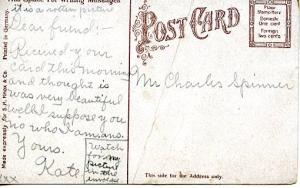 This Space For Writing Messages
it is a rotten picture
Dear friend:
Received your
card this morning
and thought is
was very beautiful
well I suppose you
no who I am
Yours.
Kate
Watch
for my
picture
in the
xxx
Made expressly for S. P. Howe & Co.
Printed in Germany.
POST CARD
Place
Stamp Here
Domestic
One cent
Foreign
two cents
Mr Charles Spinner
This side for the Address only.